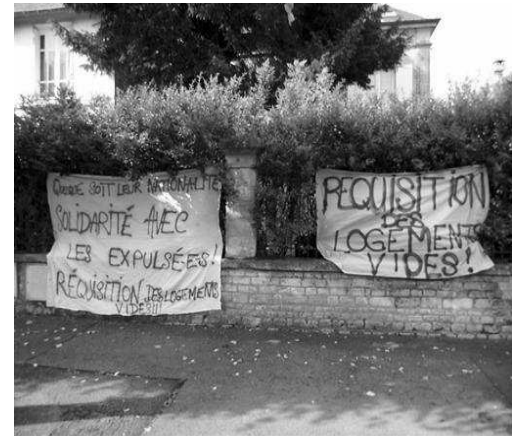 QUELQUE SOIT LEUR NATIONALITÉ
SOLIDARITÉ AVEC
LES EXPULSÉ.E.S !
RÉQUISITION DES LOGEMENTS
VIDES !!!
REQUISITION
DES
LOGEMENTS
VIDES !